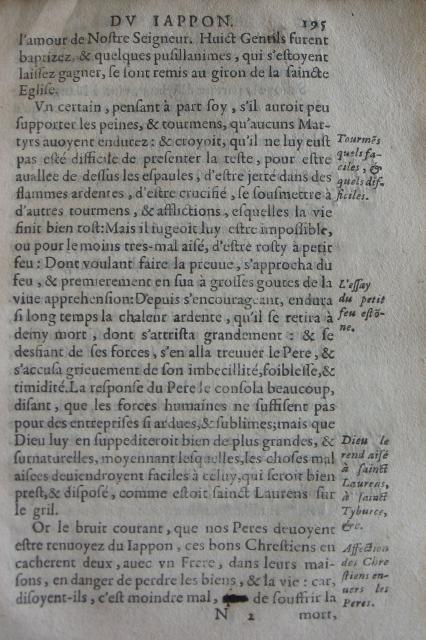 DV IAPPON. 195
l'amour de Nostre Seigneur. Huict Gentils furent
baptizez, & quelques pusillanimes, qui s'estoyent
laissez gagner, se sont remis au giron de la saincte
Eglise.
Vn certain, pensant à part soy, s'il auroit peu
supporter les peines, & tourmens, qu'aucuns Mar-
tyrs auoyent endurez: & croyoit, qu'il ne luy eust
pas esté difficile de presenter la teste, pour estre
auallee de dessus les espaules, d'estre jetté dans des
flammes ardentes, d'estre crucifié, se sousmettre à
d'autres tourmens, & afflictions, esquelles la vie
finit bien tost: Mais il iugeoit luy estre impossible,
ou pour le moins tres-mal aisé, d'estre rosty à petit
feu: Dont voulant faire la preuue, s'approcha du
feu, & premierement en sua à grosses goutes de la
viue apprehension: Depuis s'encourageant, endura
si long temps la chaleur ardente, qu'il se retira à
demy mort, dont s'attrista grandement: & se
desfiant de ses forces, s'en alla treuuer le Pere, &
s'accusa grieuement de son imbecillité, foiblesse, &
timidité. La response du Pere le consola beaucoup,
disant, que les forces humaines ne suffisent pas
pour des entreprises si ardues, & sublimes; mais que
Dieu luy en suppediteroit bien de plus grandes, &
surnaturelles, moyennant lesquelles, les choses mal
aisees deuiendroyent faciles à celuy, qui seroit bien
prest, & disposé, comme estoit sainct Laurens sur
le gril.
Or le bruit courant, que nos Peres deuoyent
estre renuoyez du Iappon, ces bons Chrestiens en
cacherent deux, auec vn Frere, dans leurs mai-
sons, en danger de perdre les biens, & la vie: car,
disoyent-ils, c'est moindre mal, de souffrir la
N 2 mort,
Tourmẽs
quels fa-
ciles, &
quels dif-
ficiles.
L'essay
du petit
feu estõ-
ne.
Dieu le
rend aisé
à sainct
Laurens,
à sainct
Tyburce,
&c.
Affection
des Chre
stiens en-
uers les
Peres.